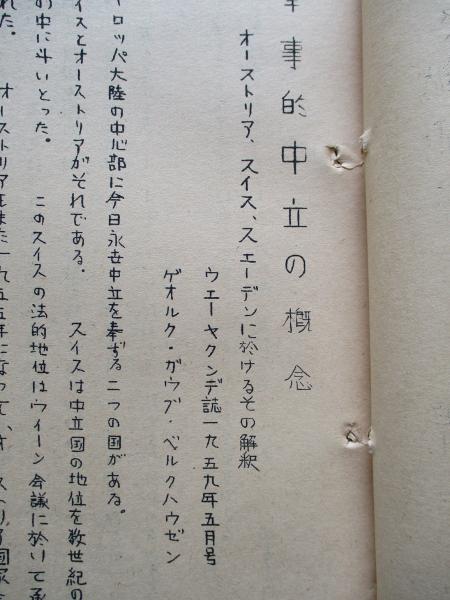 事的中立の概念
オーストリア、スイス、スエーデンに於けるその解釈
ウエーヤクンデ誌一九五九年五月号
ゲオルク・ガウプ・ベルクハウゼン
ロッパ大陸の中心部に今日永世中立を奉ずる二つの国がある。
イスとオーストリアがそれである。 スイスは中立国の地位を数世紀の
の中に斗いとった。 このスイスの法的地位はウイーン会議に於いて承
れた。 オーストリアもまた一九五五年になって、オーストリア国家